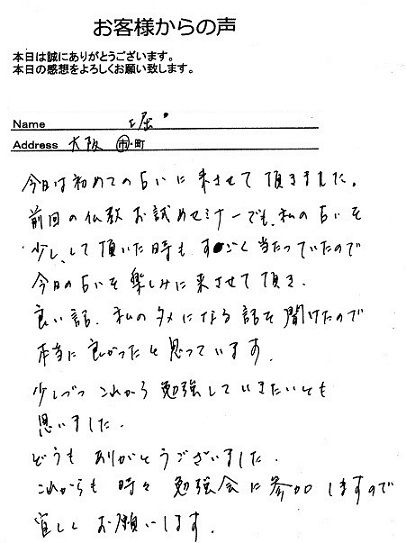 お客様からの声
本日は誠にありがとうございます。
本日の感想をよろしくお願い致します。
Name 堀
Address 大阪 市・町
今日は初めての占いに来させて頂きました。
前回の仏教お試めセミナーでも、私の占いを
少し、して頂いた時もすごく当たっていたので
今日の占いを楽しみに来させて頂き、
良い話、私のタメになる話を聞けたので
本当に良かったと思っています。
少しづつこれから勉強していきたいとも
思いました。
どうもありがとうございました。
これからも時々勉強会に参加しますので
宜しくお願いします。